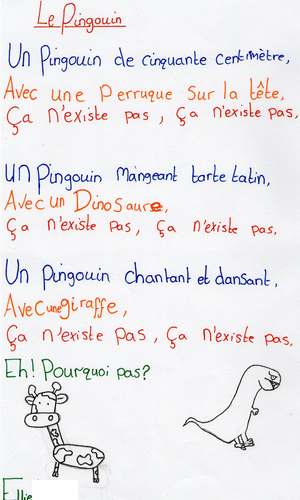 Le Pingouin
Un Pingouin de cinquante centimètre,
Avec une Perruque sur la tête,
Ça n'existe pas, Ça n'existe pas.
UN Pingouin Mangeant tarte tatin,
Avec un Dinosaure,
Ça n'existe pas, Ça n'existe pas.
Un Pingouin chantant et dansant,
Avec une giraffe,
Ça n'existe pas, Ça n'existe pas.
Eh! Pourquoi pas?
Ellie